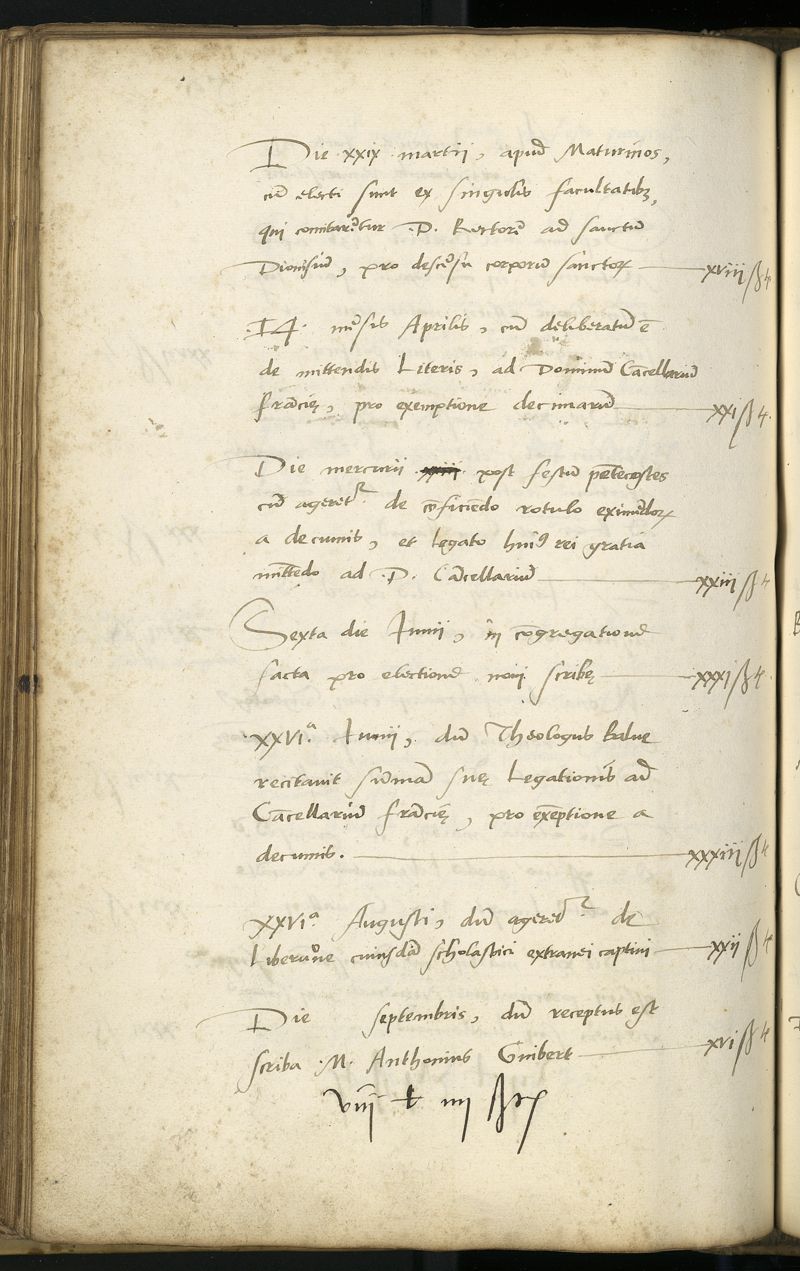 Die xxix martii, apud Maturinos,
cū electi sunt ex singulis facultatibꝫ,
qui comitarētur .D. Rectorē ad sanctū
Dionisiū, pro descēsu corporū sanctoꝝ — xviii ß 4
.14. mēsis Aprilis, cū deliberatū ē
de mittendis Literis, ad Dominū Cācellariū
frācię, pro exemptione decimarū — xxi ß 4.
Die mercurii post festum pētecostes
cū ageretᷣ de cōficiēdo rotulo eximēdoꝝ
a decumis, et legato huiꝰ rei gratia
mittēdo ad .D. Cācellariū — xxiii ß 4
Sexta die Iunii, in cōgregatione
facta pro electione novi scribę — xxxi ß 4.
.XXVI.ª Iunii, dū Theologus
recitavit sūmā suę Legationis ad
Cācellariū frācię, pro exēptione a
decumis. — xxxiii ß 4
XXVIª Augusti, dū ageretᷣ de
Liberatiōe cuiusdā scholastici extranei captivi — xxii ß 4
Die septembris, dū receptus est
scriba .M. Anthonius Guibert — xvi ß 4
viii ₶ iiii ß